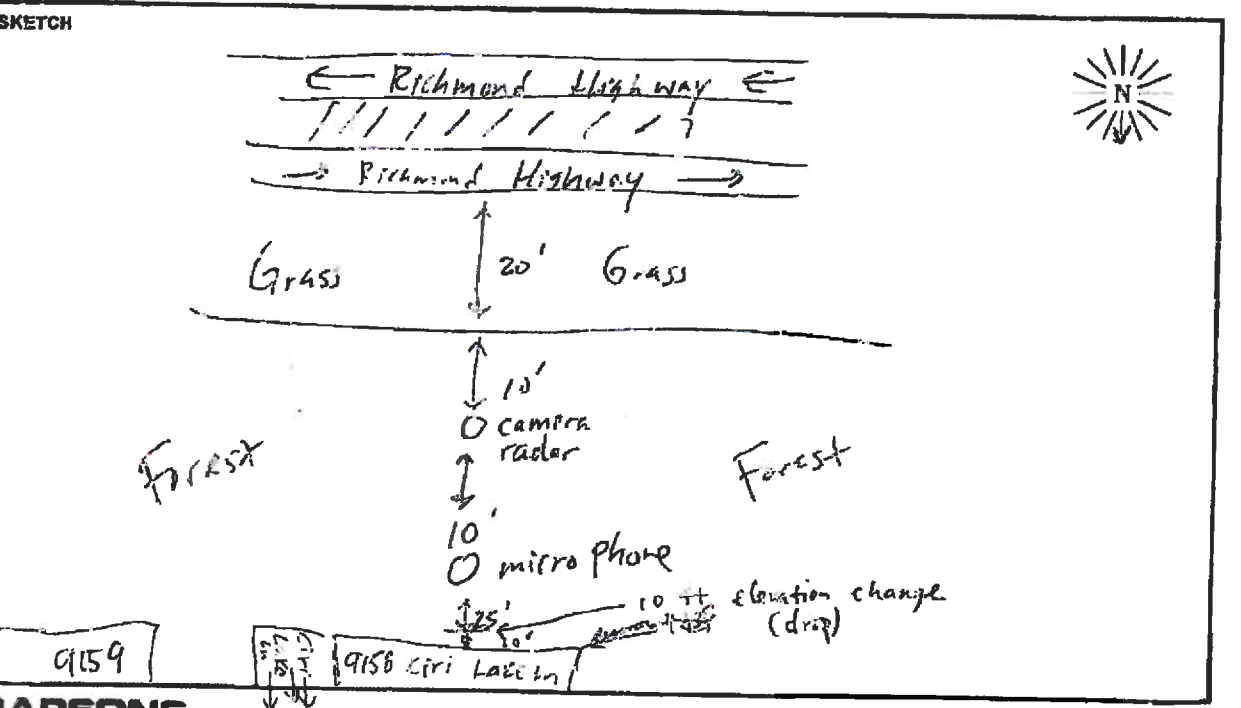 SKETCH
Richmond Highway
N
Richmond Highway
Grass
20'
Grass
10'
camera
radar
Forest
Forest
10'
microphone
25'
10 ft elevation change
(drop)
10'
9159
Ciri
Lake
Ln
9158 Ciri Lake Ln
PARSONS